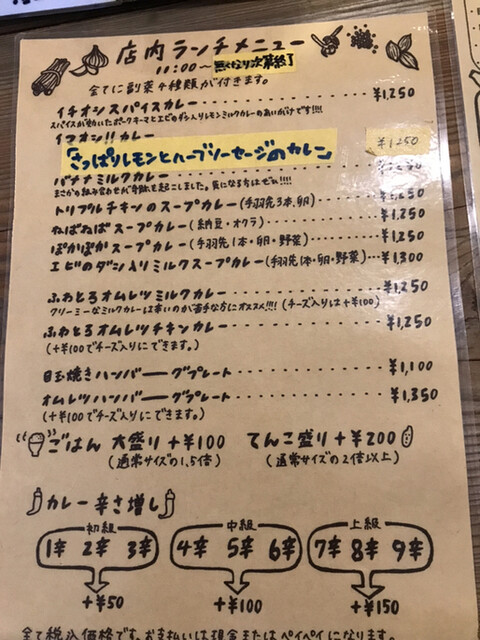 店内ランチメニュー
11:00〜無くなり次第終了
全てに副菜4種類が付きます。
イチオシスパイスカレー ¥1,250
スパイスが効いたポークキーマとエビのダシ入りレモンミルクカレーのあいがけです!!!!
イマオシ!!カレー
「さっぱりレモンとハーブソーセージのカレー」 ¥1250
バナナミルクカレー
まさかの組み合わせが奇跡を起こしました。気になる方はぜひ!!!!
トリプルチキンのスープカレー(手羽先3本、卵) ¥1,250
ねばねばスープカレー(納豆・オクラ) ¥1,250
ぽかぽかスープカレー(手羽先1本・卵・野菜) ¥1,250
エビのダシ入りミルクスープカレー(手羽先1本・卵・野菜) ¥1,300
ふわとろオムレツミルクカレー ¥1,250
クリーミーなミルクカレーは辛いのが苦手な方にオススメ!!!!(チーズ入りは+¥100)
ふわとろオムレツチキンカレー ¥1,250
(+¥100でチーズ入りにできます。)
目玉焼きハンバーグプレート ¥1,100
オムレツハンバーグプレート ¥1,350
(+¥100でチーズ入りにできます。)
ごはん 大盛り+¥100 てんこ盛り+¥200
(通常サイズの1.5倍) (通常サイズの2倍以上)
カレー辛さ増し
初級 中級 上級
1辛 2辛 3辛 4辛 5辛 6辛 7辛 8辛 9辛
+¥50 +¥100 +¥150
全て税込価格です。お支払いは現金またはペイペイになります。